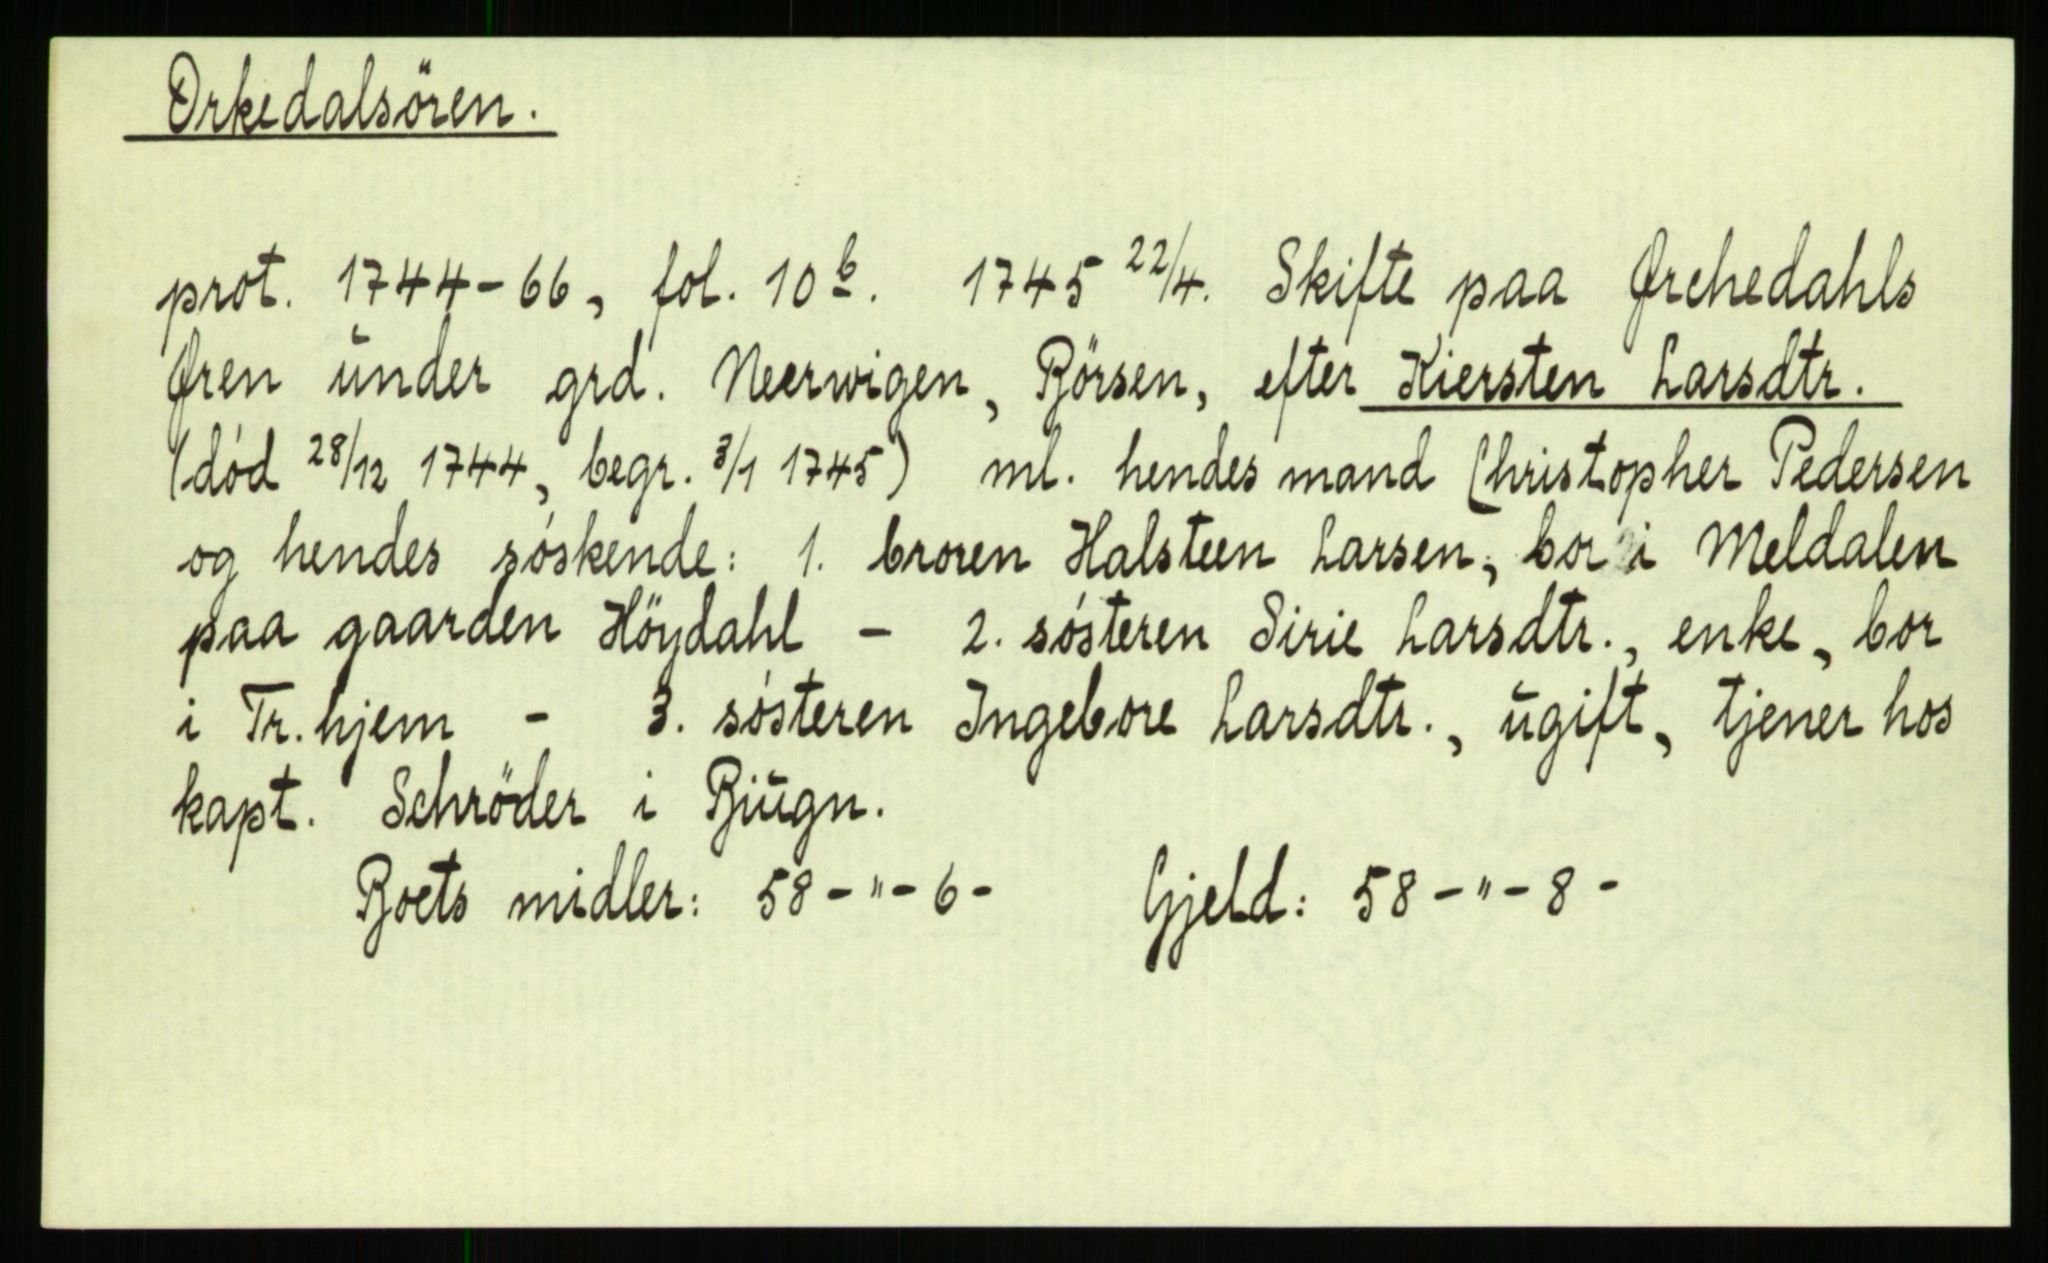 Orkedalsören.
prot. 1744-66, fol. 10 b. 1745 22/4. Skifte paa Ørchedahls
Øren under grd. Neerwigen, Börsen, efter Kiersten Larsdtr.
(död 28/12 1744, begr. 3/1 1745) ml. hendes mand Christopher Pedersen
og hendes söskende: 1. broren Halsteen Larsen, bor i Meldalen
paa gaarden Höydahl - 2. sösteren Sirie Larsdtr., enke, bor
i Tr.hjem - 3. sösteren Ingebore Larsdtr., ugift, tjener hos
kapt. Schröder i Bjugn.
Boets midler: 58-"-6- Gjeld: 58-"-8-